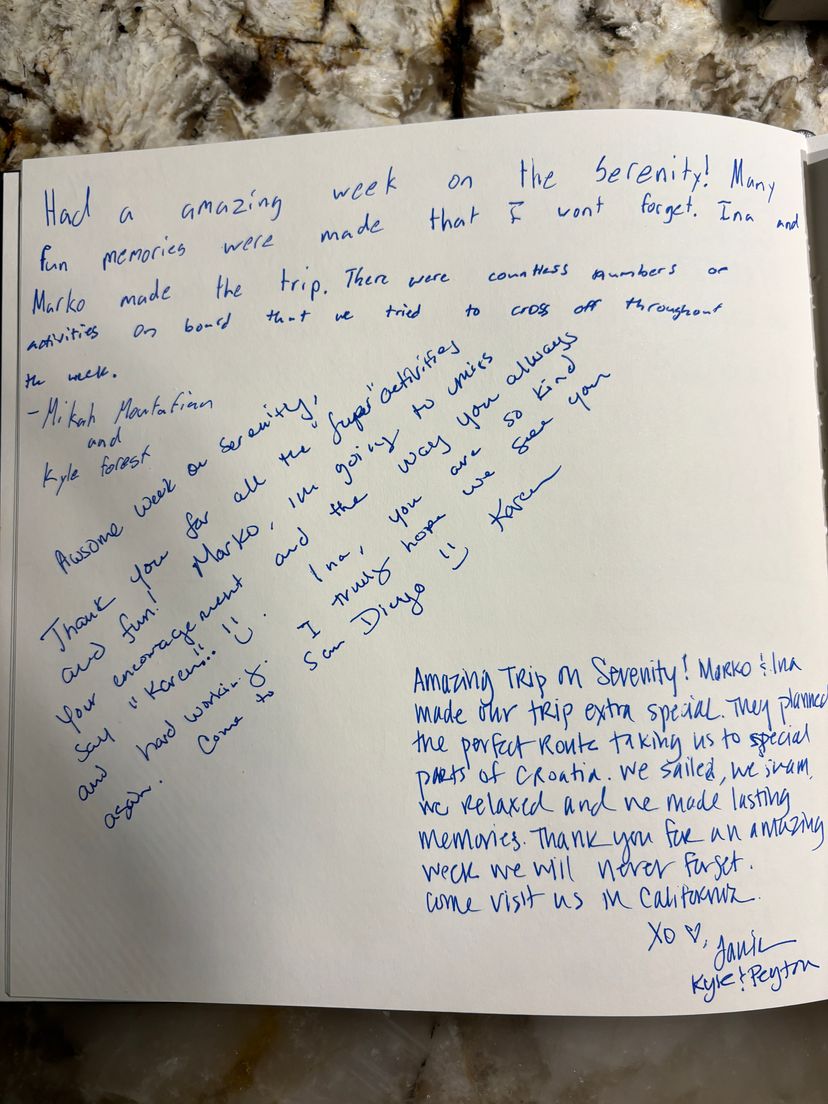 Had a amazing week on the Serenity! Many
fun memories were made that I wont forget. Ina and
Marko made the trip. There were countless numbers of
activities on board that we tried to cross off throughout
the week.
- Mikah
and
Kyle forest
Awsome week on Serenity,
Thank you for all the "super" activities
and fun! Marko, im going to miss
your encouragement and the way you always
say "Karen.." !! Ina, you are so kind
and hard working. I truly hope we see you
again. Come to San Diego !! Karen
Amazing Trip on Serenity! Marko & Ina
made our trip extra special. They planned
the perfect Route taking us to special
parts of Croatia. We sailed, we swam,
we relaxed and we made lasting
memories. Thank you for an amazing
week we will never forget.
Come visit us in California.
XO ♡,
Kyle & Peyton